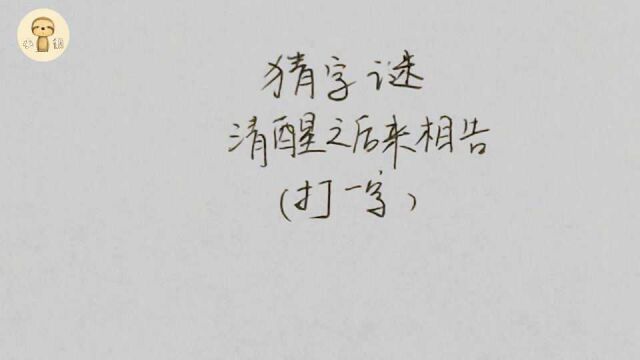 猜字谜
清醒之后来相告
(打一字)